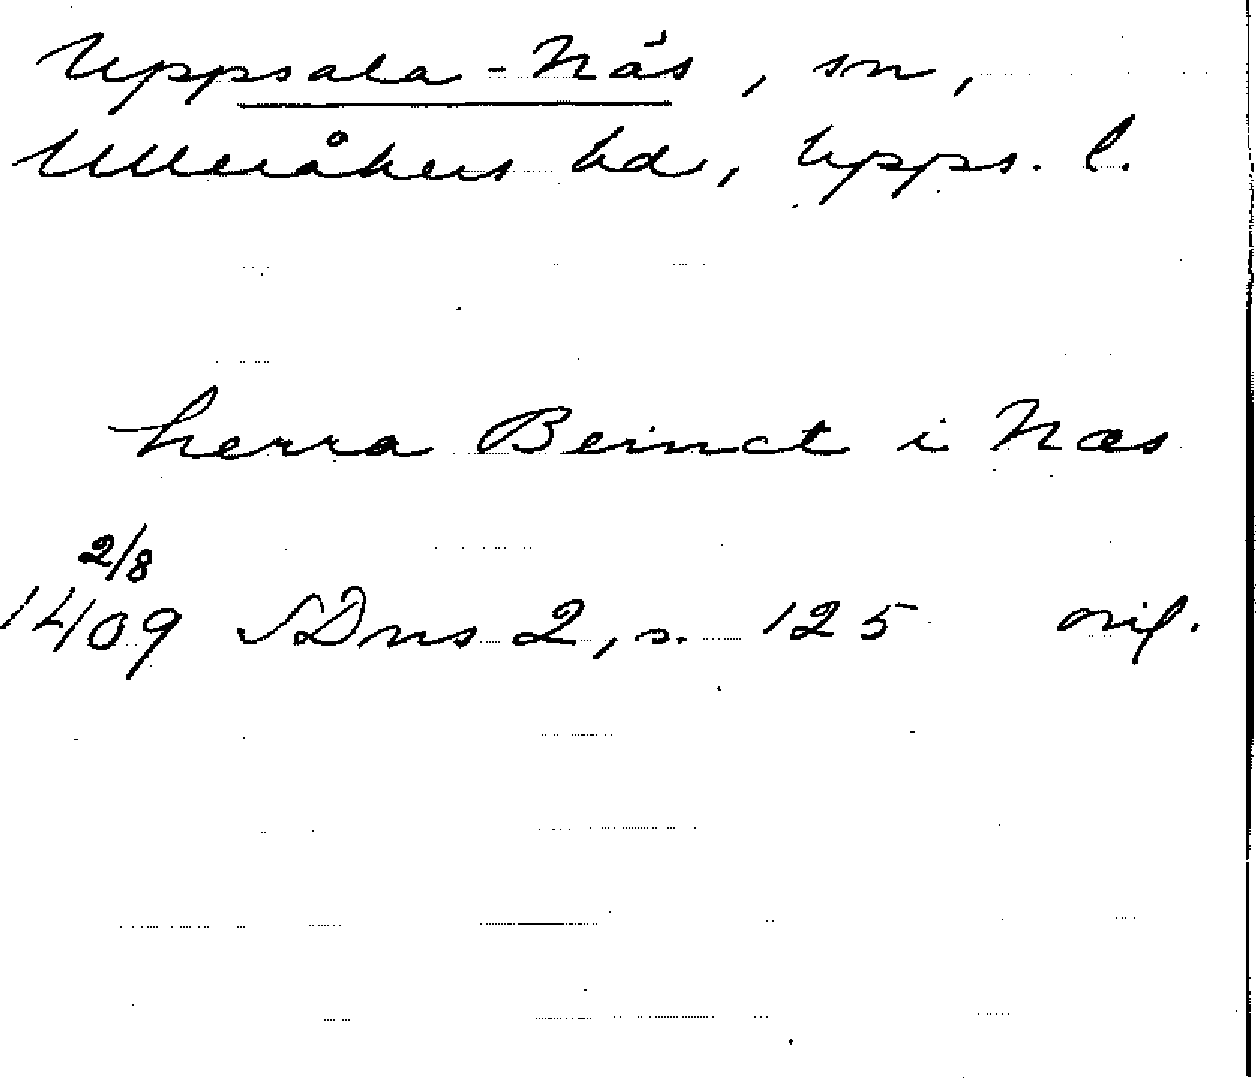 Uppsala-Näs, sn,
Ulleråkers hd, Upps. l.
herra Beinct i Næs
2/8
1409 SDns 2, s. 125 orig.